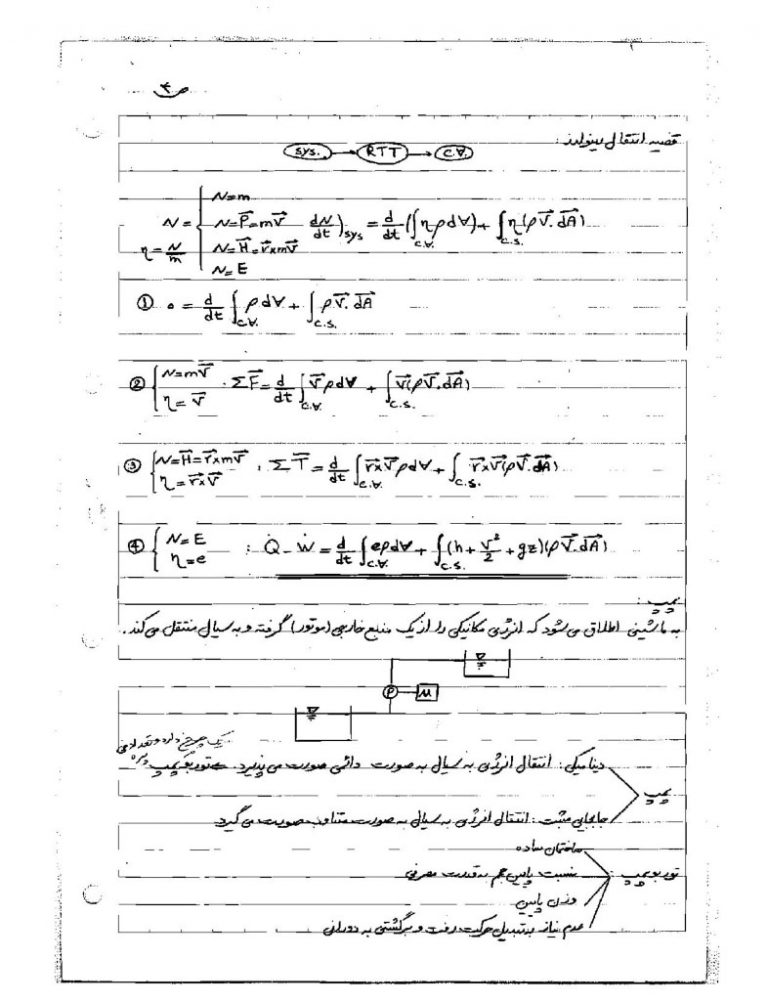 ص ۴
قضیه انتقال رینولدز :
sys. → RTT → C.∀.
N=m
N = N=P⃗=mV⃗ dN/dt)sys = d/dt(∫C.∀. ηρd∀) + ∫C.S. η(ρV⃗.dA⃗)
η = N/m N=H⃗=r⃗×mV⃗
N=E
① 0 = d/dt ∫C.∀. ρd∀ + ∫C.S. ρV⃗.dA⃗
② { N=mV⃗ . ΣF⃗ = d/dt ∫C.∀. V⃗ρd∀ + ∫C.S. V⃗(ρV⃗.dA⃗)
η = V⃗
③ { N=H⃗=r⃗×mV⃗ : ΣT⃗ = d/dt ∫C.∀. r⃗×V⃗ρd∀ + ∫C.S. r⃗×V⃗(ρV⃗.dA⃗)
η = r⃗×V⃗
④ { N=E : Q̇ - Ẇ = d/dt ∫C.∀. eρd∀ + ∫C.S. (h + V²/2 + gz)(ρV⃗.dA⃗)
η = e
پمپ :
به ماشینی اطلاق می شود که انرژی مکانیکی را از یک منبع خارجی (موتور) گرفته و به سیال منتقل می کند.
P M
یک چرخ دارد و تعدادی پره
دینامیکی : انتقال انرژی به سیال به صورت دائمی صورت می پذیرد. توربوپمپ
پمپ
جابجایی مثبت : انتقال انرژی به سیال به صورت متناوب صورت می گیرد
ساختمان ساده
توربوپمپ : نسبت پایین حجم به قدرت مصرفی
وزن پایین
عدم نیاز به تبدیل حرکت رفت و برگشتی به دورانی